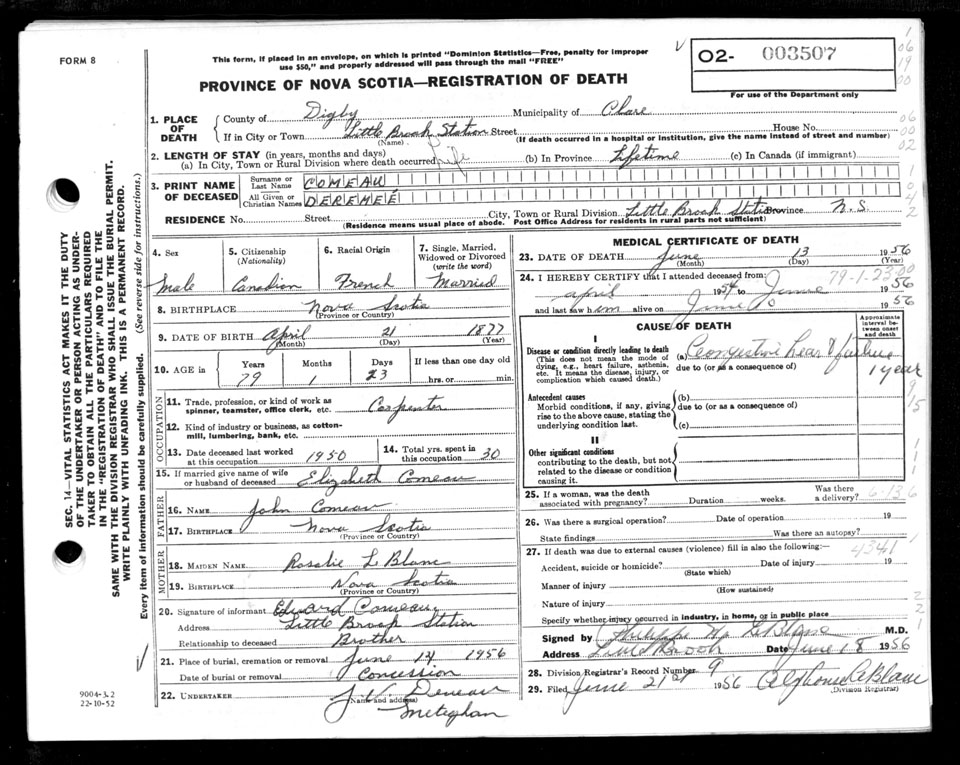 FORM 8
This form, if placed in an envelope, on which is printed "Dominion Statistics—Free, penalty for improper
use $50," and properly addressed will pass through the mail "FREE"
02- 003507
For use of the Department only
PROVINCE OF NOVA SCOTIA—REGISTRATION OF DEATH
1. PLACE OF DEATH
County of Digby Municipality of Clare
If in City or Town Little Brook Station Street House No.
(Name) (If death occurred in a hospital or institution, give the name instead of street and number)
2. LENGTH OF STAY (in years, months and days)
(a) In City, Town or Rural Division where death occurred life (b) In Province Lifetime (c) In Canada (if immigrant)
3. PRINT NAME OF DECEASED
Surname or Last Name COMEAU
All Given or Christian Names DEREMÉE
RESIDENCE No. Street City, Town or Rural Division Little Brook Station Province N.S.
(Residence means usual place of abode. Post Office Address for residents in rural parts not sufficient)
4. Sex Male
5. Citizenship (Nationality) Canadian
6. Racial Origin French
7. Single, Married, Widowed or Divorced (write the word) Married
8. BIRTHPLACE Nova Scotia
(Province or Country)
9. DATE OF BIRTH April 21 1877
(Month) (Day) (Year)
10. AGE in Years Months Days If less than one day old
79 1 23 hrs. or min.
OCCUPATION
11. Trade, profession, or kind of work as
spinner, teamster, office clerk, etc. Carpenter
12. Kind of industry or business, as cotton-
mill, lumbering, bank, etc.
13. Date deceased last worked at this occupation 1950
14. Total yrs. spent in this occupation 30
15. If married give name of wife
or husband of deceased Elizabeth Comeau
FATHER
16. NAME John Comeau
17. BIRTHPLACE Nova Scotia
(Province or Country)
MOTHER
18. MAIDEN NAME Rosalie LeBlanc
19. BIRTHPLACE Nova Scotia
(Province or Country)
20. Signature of informant Edward Comeau
Address Little Brook Station
Relationship to deceased Brother
21. Place of burial, cremation or removal June 1956
Date of burial or removal Concession
22. UNDERTAKER J. V. Deveau
(Name and address)
Meteghan
MEDICAL CERTIFICATE OF DEATH
23. DATE OF DEATH June 13 1956
(Month) (Day) (Year)
24. I HEREBY CERTIFY that I attended deceased from: 79-1-23-00
April 1954 to June 1956
and last saw him alive on June 1956
CAUSE OF DEATH
Approximate interval between onset and death
I
Disease or condition directly leading to death
(This does not mean the mode of
dying, e.g., heart failure, asthenia,
etc. It means the disease, injury, or
complication which caused death.)
(a) Congestive heart failure
due to (or as a consequence of) 1 year
Antecedent causes
Morbid conditions, if any, giving
rise to the above cause, stating the
underlying condition last.
(b)
due to (or as a consequence of)
(c)
II
Other significant conditions
contributing to the death, but not
related to the disease or condition
causing it.
25. If a woman, was the death
associated with pregnancy? Duration weeks. Was there a delivery?
26. Was there a surgical operation? Date of operation 19
State findings Was there an autopsy?
27. If death was due to external causes (violence) fill in also the following:— 4341
Accident, suicide or homicide? Date of injury 19
(State which)
Manner of injury
(How sustained)
Nature of injury
Specify whether injury occurred in industry, in home, or in public place
Signed by LeBlanc M.D.
Address Little Brook Date June 18 1956
28. Division Registrar's Record Number 9
29. Filed June 21st 1956 Alphonse LeBlanc
(Division Registrar)
SEC. 14—VITAL STATISTICS ACT MAKES IT THE DUTY
OF THE UNDERTAKER OR PERSON ACTING AS UNDER-
TAKER TO OBTAIN ALL THE PARTICULARS REQUIRED
IN THE "REGISTRATION OF DEATH" AND TO FILE THE
SAME WITH THE DIVISION REGISTRAR WHO SHALL ISSUE THE BURIAL PERMIT.
WRITE PLAINLY WITH UNFADING INK. THIS IS A PERMANENT RECORD.
Every item of information should be carefully supplied. (See reverse side for instructions.)
9004-3.2
22-10-52